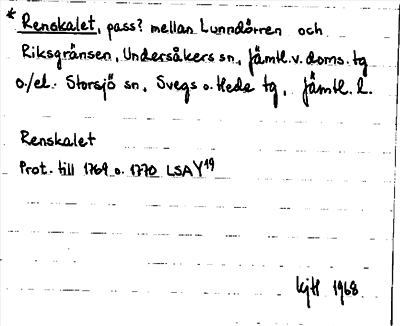 * Renskalet, pass? mellan Lunndörren och
Riksgränsen, Undersåkers sn, Jämtl. v. doms. tg
o./el. Storsjö sn, Svegs o. Hede tg, Jämtl. l.
Renskalet
Prot. till 1769 o. 1770 LSA Y19
KjH 1968